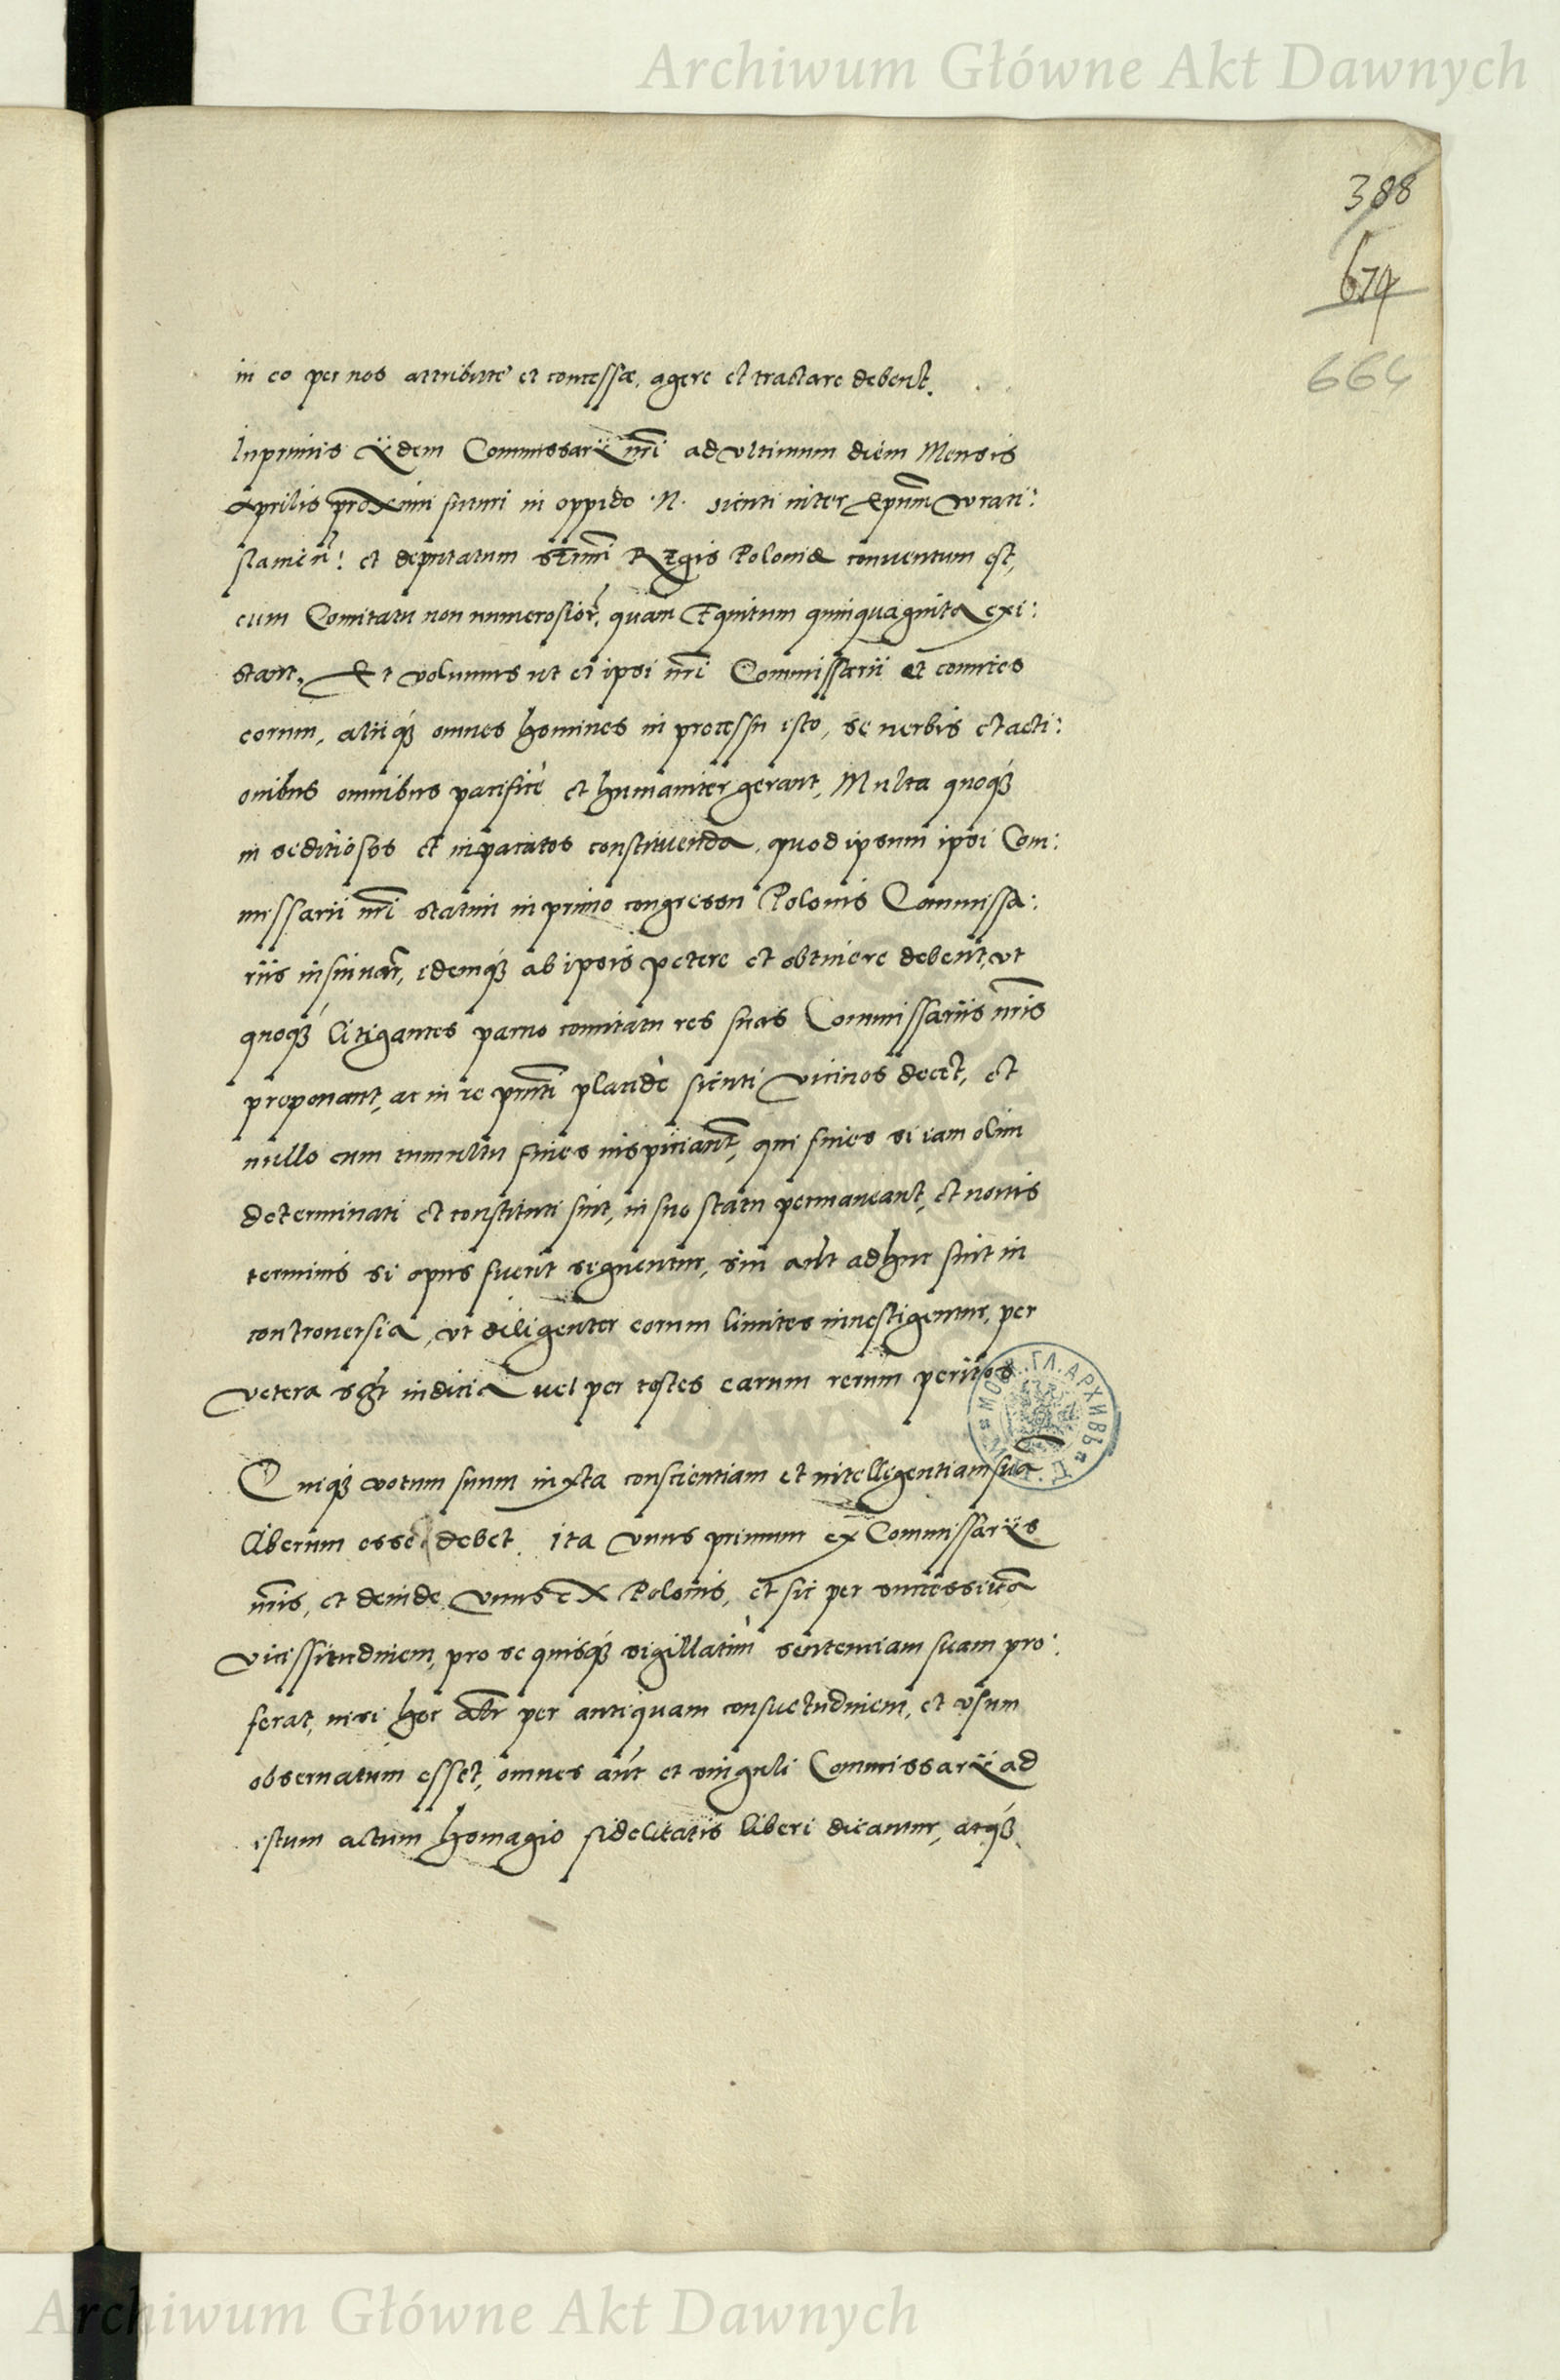 Archiwum Główne Akt Dawnych
388
674
664
in eo per nos attributę et concessæ, agere et tractare debent.
Inprimis ijdem Commissarij nr̃i ad ultimum diem Mensis
Aprilis proximi futuri in oppido .N. sicuti inter Ep̃um Wrati:
slauien̄: et deputatum Ser̃mi Regis Poloniæ conuentum est,
cum Comitatu non numerosior̃, quam Equitum quinquaginta exi:
stant, Et volumus ut et ipsi nr̃i Commissarii et comites
eorum, aliiq́ꝫ omnes homines in processu isto, se uerbis et acti:
onibus omnibus pacificè et humaniter gerant, Multa quoq́ꝫ
in seditiosos et inpacatos constituenda, quod ipsum ipsi Com:
missarii nr̃i statim in primo congressu Polonis Commissa:
riis insinuar̃, idemq́ꝫ ab ipsis petere et obtinere debent, ut
quoq́ꝫ litigantes paruo comitatu res suas Commissariis nr̃is
proponant, ac in re pñti placidè sicuti vicinos decet, et
nullo cum tumultu fines inspiciant, qui fines si iam olim
determinati et constituti sint, in suo statu permaneant, et nouis
terminis si opus fuerit signentur, sin aũt adhuc sint in
controuersia, ut diligenter eorum limites inuestigentur, per
vetera indicia uel per testes earum rerum peritos
Cuiq́ꝫ votum suum iuxta conscientiam et intelligentiam suã
liberum esse debet. Ita Vnus primum ex Commissarijs
nr̃is, et deinde Vnus ex Polonis, et sic per successiuã
vicissitudinem, pro se quisq́ꝫ sigillatim sententiam suam pro:
ferat, nisi hoc alr̃ per antiquam consuetudinem, et usum
obseruatum esset, omnes aũt et singuli Commissarij ad
istum actum homagio fidelitatis liberi dicantur, atq́ꝫ
Archiwum Główne Akt Dawnych